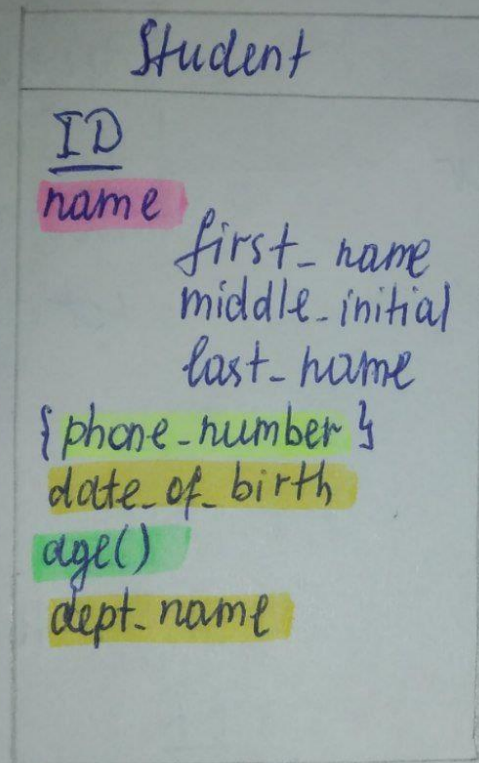 Student
ID
name
first_name
middle_initial
last_name
{phone_number}
date_of_birth
age()
dept_name